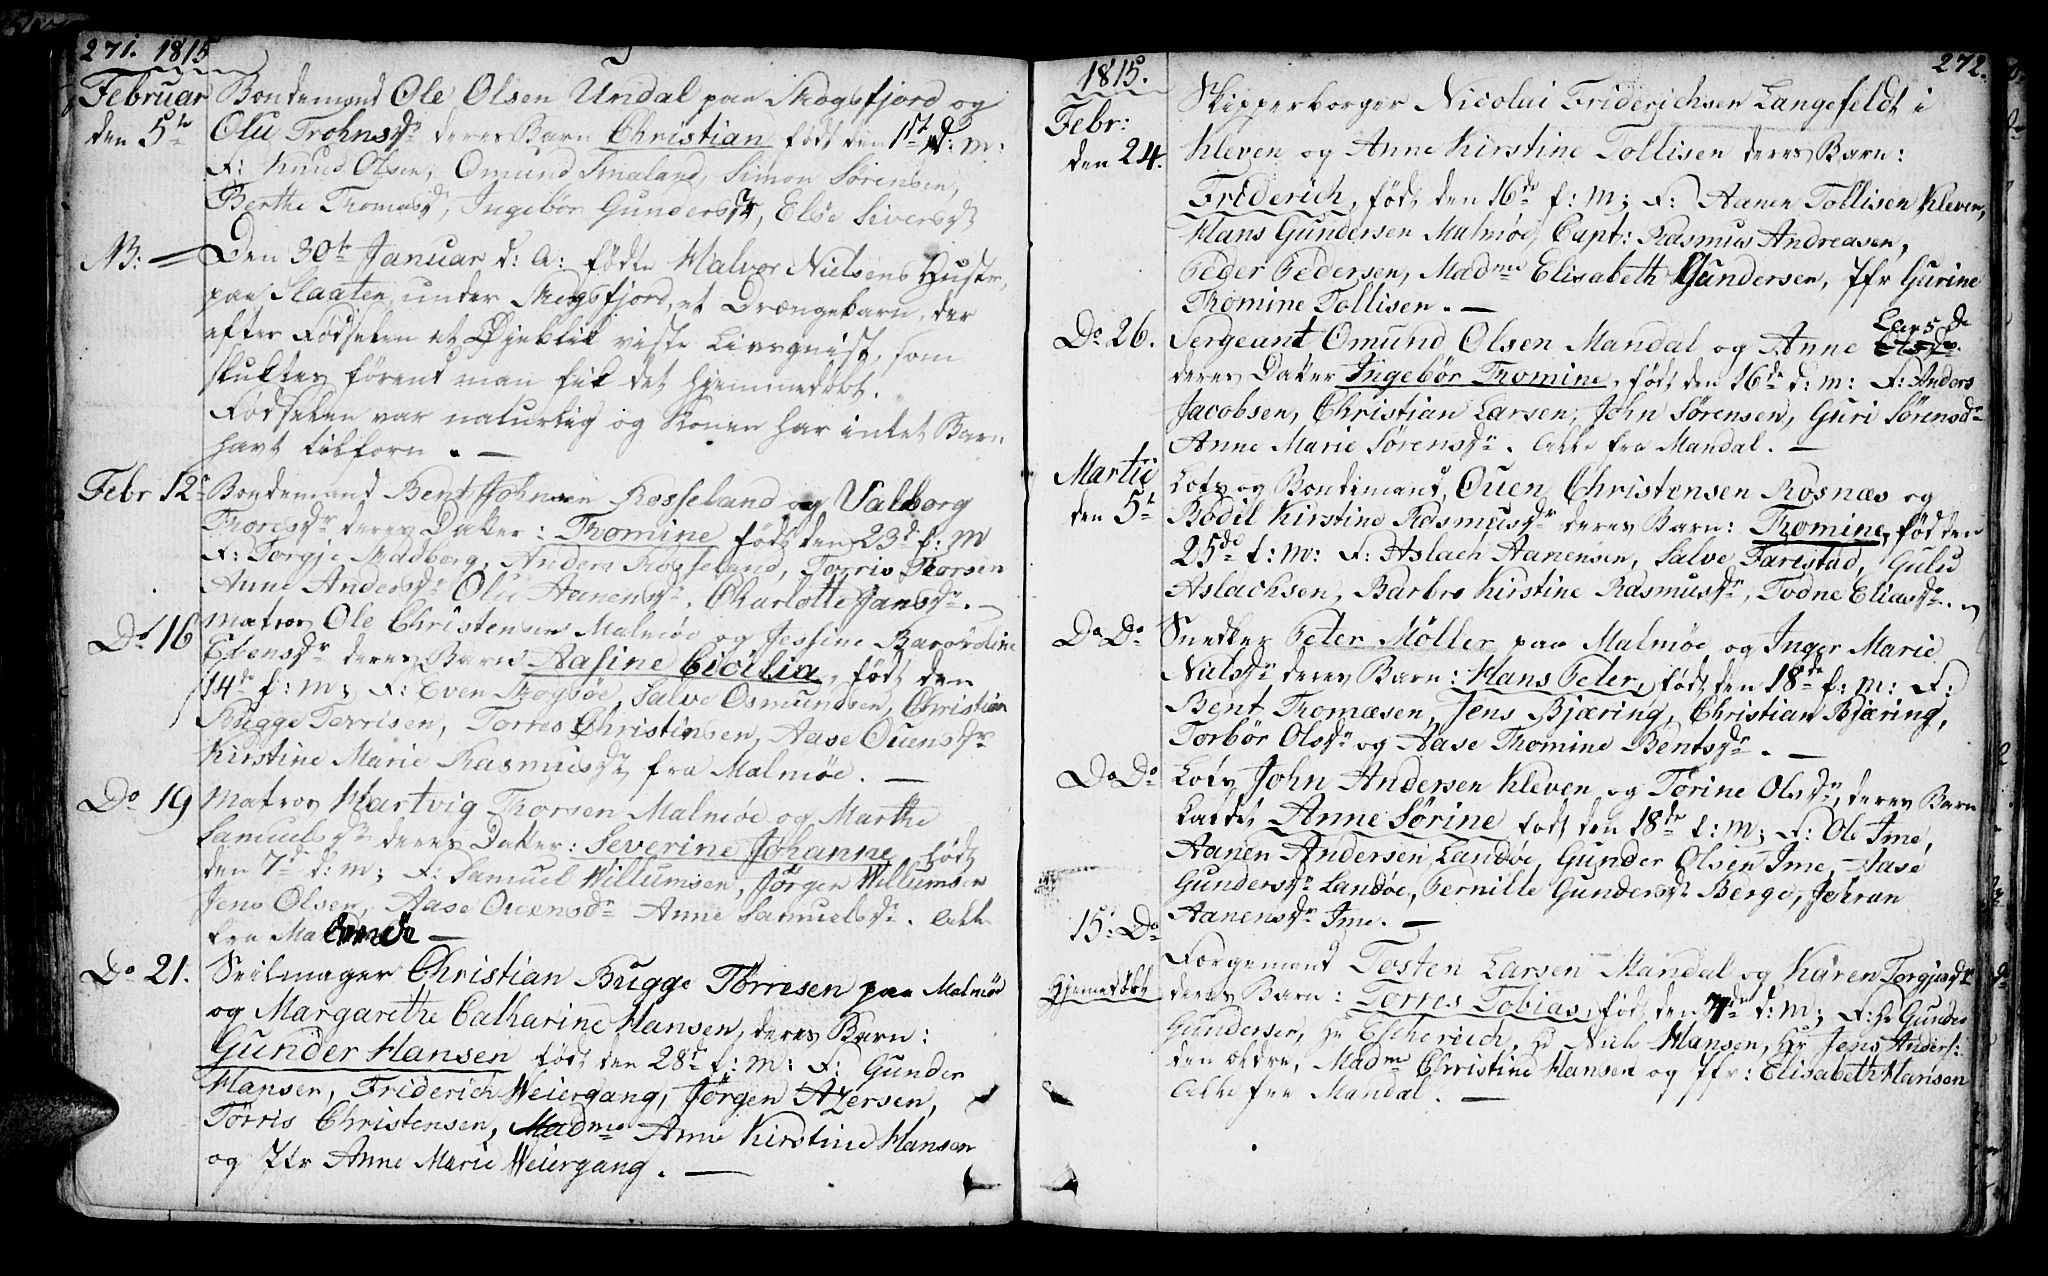 271. 1815
Februar Bondemand Ole Olsen Undal paa Skogsfjord og
den 5te Olu Trohnsdr deres Barn Christian født den 1st d: m:
F: Knud Olsen, Omund Smaland, Simon Sørensen,
Berthe Thomasdr, Ingebør Gundersdr, Else Siversdr
NB: — Den 30te Januar d: A: fødte Halvor Nielsens Hustr,
paa Slaaten under Skogsfjord, et Drængebarn, der
efter Fødselen et Øjeblik viste Livsgnist, som
sluktes førend man fik det hjemmedøbt.
Fødselen var naturlig og Konen har intet Barn
havt tilforn. —
Febr 12te Bondemand Bent Johnsen Rosseland og Valborg
Thoresdr deres Datter: Thomine født den 23de f: M
F: Torgje Anders Rosseland, Torris Thorsen
Anne Andersdr Olu Aanensdr. Charlotte Jansdr. —
Do 16 Matros Ole Christensen Malmøe og Jessine Barordine
Evensdr deres Barn Aasine Cicilia, født den
14de f: m; F: Even Skogsøe, Salve Osmundsen, Christian
Bugge Terrisen, Torres Christensen, Aase Ouensdr
Kirstine Marie Rasmusdr fra Malmøe. —
Do 19 Matros Hartvig Thorsen Malmøe og Marthe
Samuelsdr deres Datter: Severine Johanne født
den 7de d: m; F: Samuel Willumsen, Jørgen Willumsen
Jens Olsen, Aase Ouensdr Anne Samuelsdr. Alle
fra Malmøe —
Do 21. Seilmager Christian Bugge Tørresen paa Malmøe
og Margarethe Catharine Hansen, deres Barn:
Gunder Hansen født den 28de f: m: F: Gunder
Hansen, Friderich Weiergang, Jørgen Azersen,
Torris Christensen, Madme Anne Kirstine Hansen
og Jfr Anne Marie Weiergang. —
1815. 272.
Febr: Skipperborger Nicolai Friderichsen Langefeldt i
den 24. Kleven og Anne Kirstine Tollisen deres Barn:
Friderich, født den 16de f: m; F: Aanen Tollisen Kleven,
Hans Gundersen Malmøe, Capt: Rasmus Andreasen,
Peder Pedersen, Madme Elisabeth Gundersen, Jfr Gurine
Thomine Tollisen. —
Do 26. Sergeant Omund Olsen Mandal og Anne Larsdr
deres Datter Ingebør Thomine, født den 16de d: m: F: Anders
Jacobsen, Christian Larsen, John Sørensen, Guri Sørensdr
Anne Marie Sørensdr. Alle fra Mandal. —
Martii Lots og Bondemand, Ouen Christensen Rosnæs og
den 5te Bodil Kirstine Rasmusdr deres Barn: Thomine, fød den
25de f: m: F: Aslach Aanensen, Salve Farestad, Gulu
Aslachsen, Barbro Kirstine Rasmusdr, Todne Eliasdr. —
Do Do Snedker Peter Möller paa Malmøe og Inger Marie
Nielsdr deres Barn: Hans Peter, født den 18de f: m: F:
Bent Thomæsen, Jens Bjæring, Christian Bjæring,
Torbør Olsdr og Aase Thomine Bentsdr. —
Do Do Lots John Andersen Kleven og Torine Olsdr, deres Barn
kaldt Anne Sørine født den 18de f: m; F: Ole Ime,
Aanen Andersen Landøe, Gunder Olsen Ime, Aase
Gundersdr Landøe, Pernille Gundersdr Berge, Johran
Aanensdr Ime. —
15: Do Forgemand Tosten Larsen Mandal og Karen Torgjusdr
Hjemmedøbt deres Barn: Torres Tobias, født den 7de d: m; F: Hr Gunder
Gundersen, Hr Escherich, Hr Niels Hansen, Hr Jens Anders:
den ældre, Madme Christine Hansen og Jfr: Elisabeth Hansen
Alle fra Mandal. —